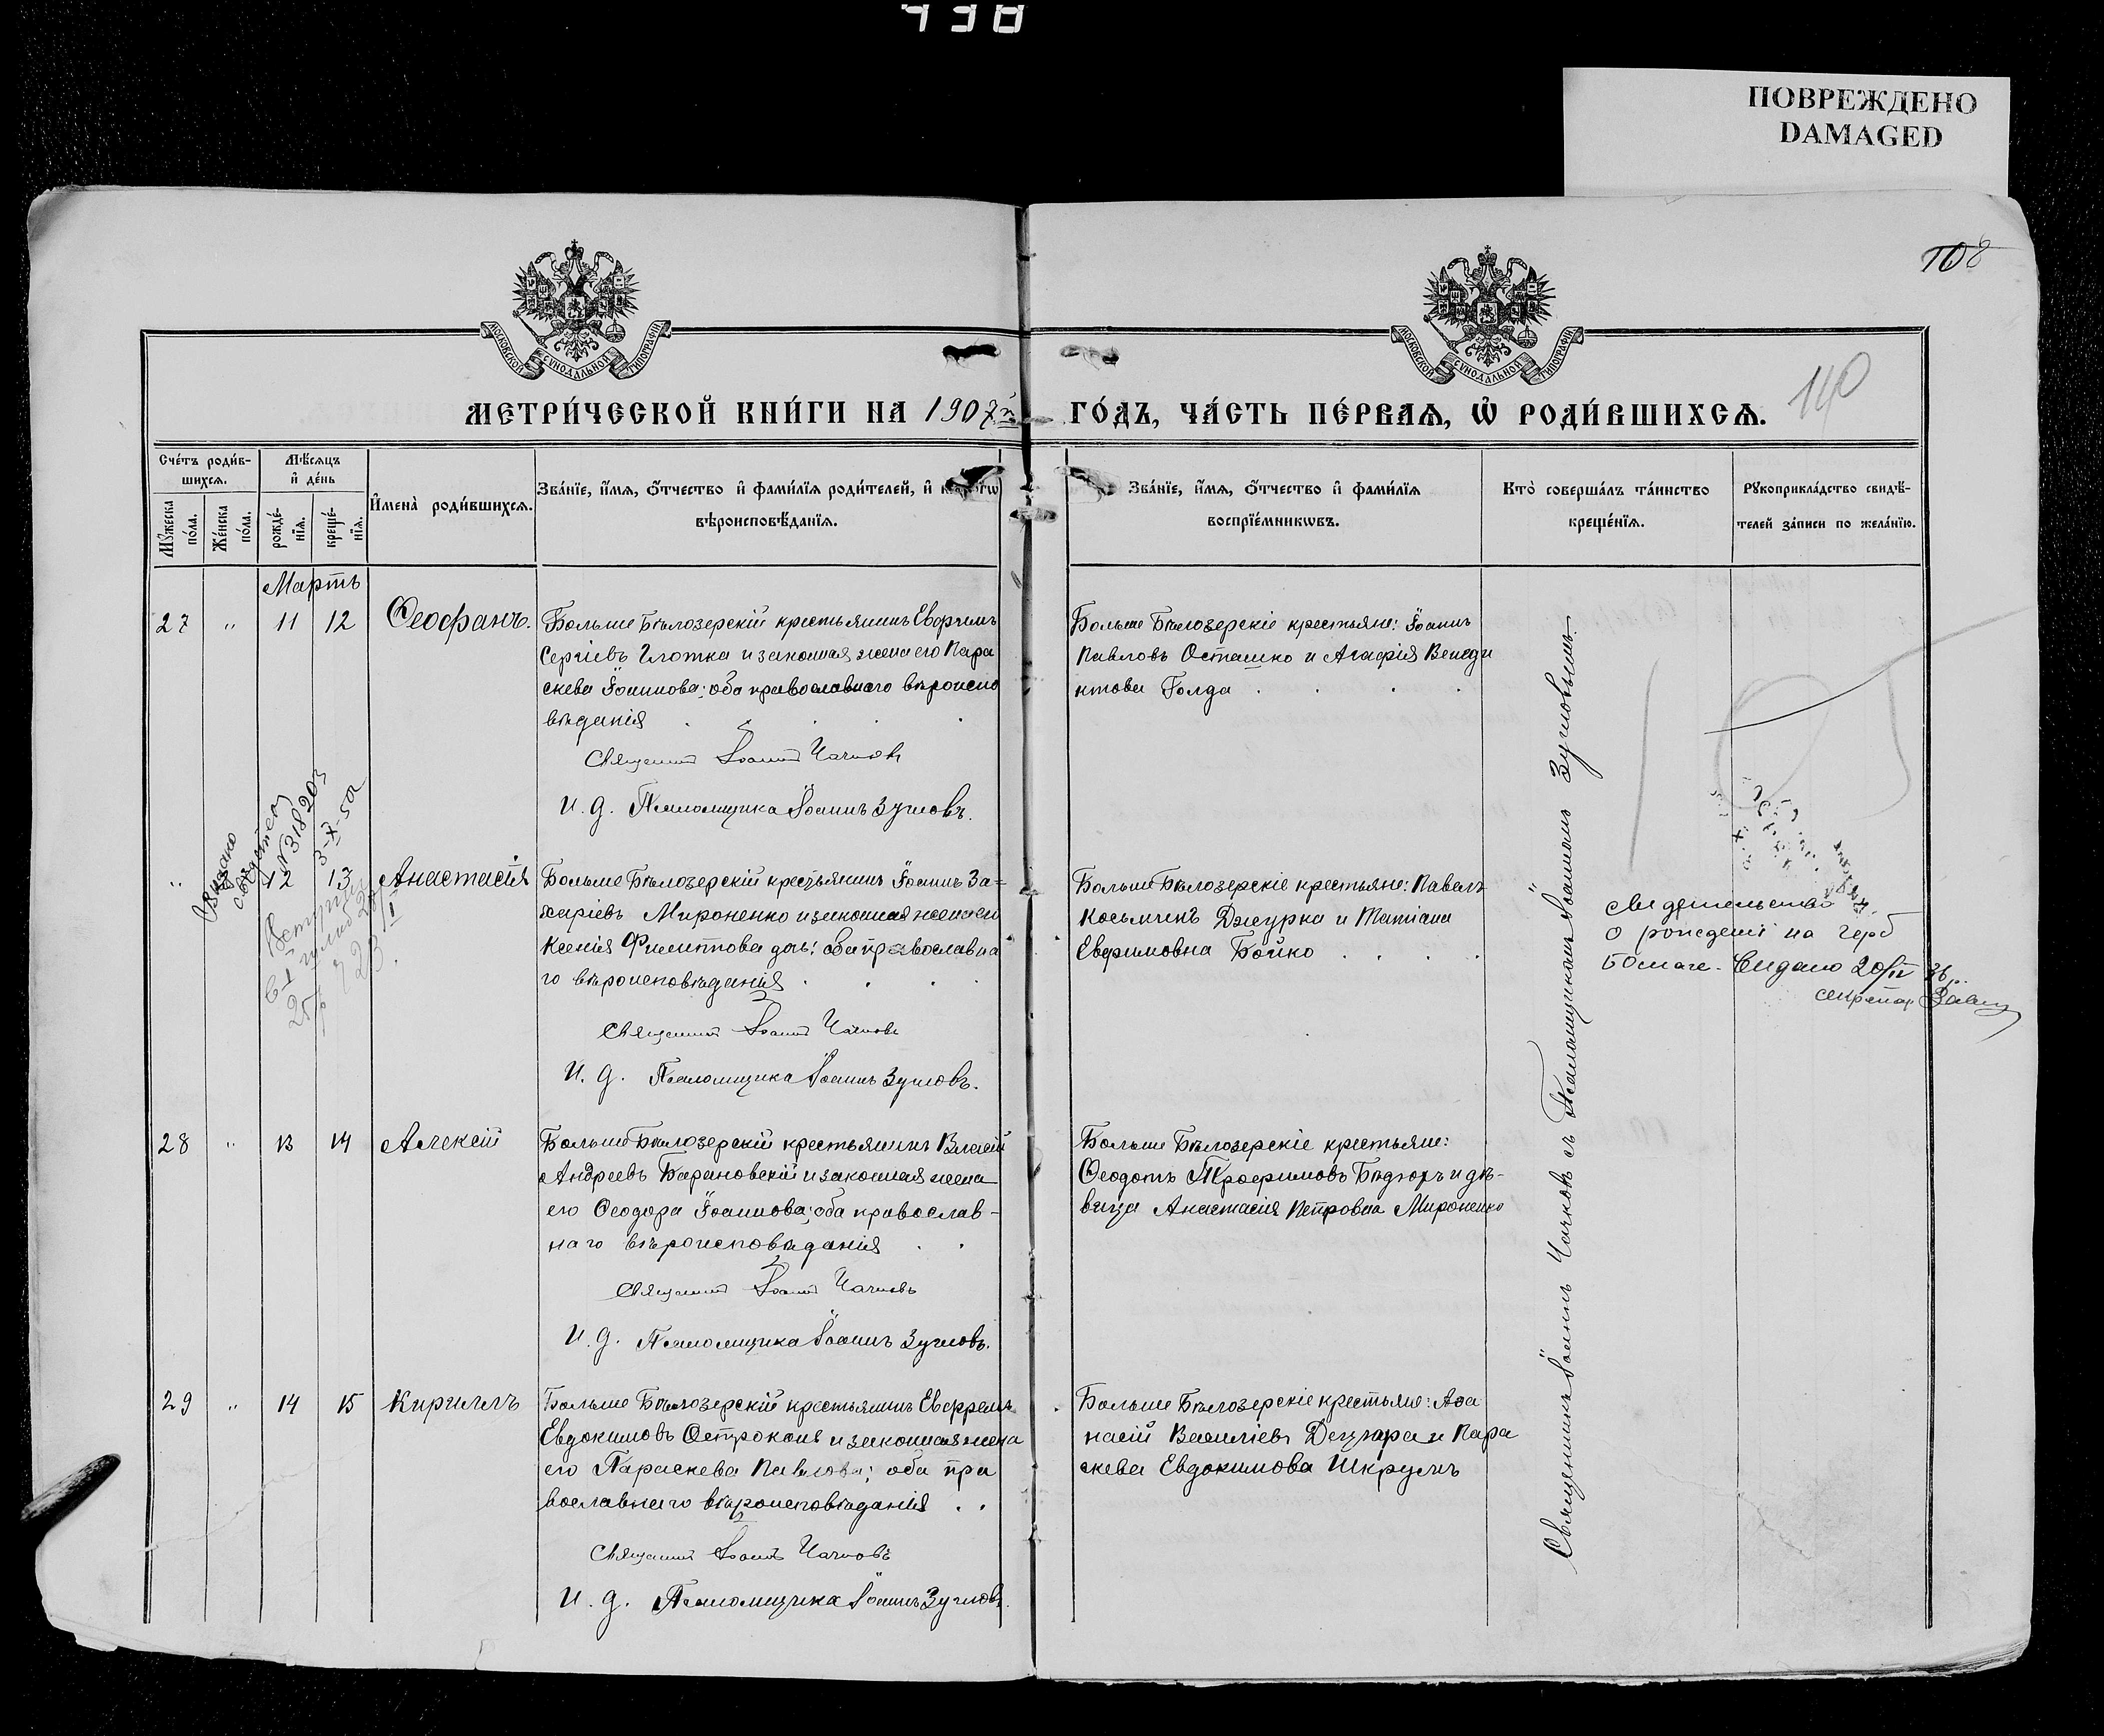 738
ПОВРЕЖДЕНО
DAMAGED
108
МОСКОВСКОЙ СѴНОДАЛЬНОЙ ТИПОГРАФІИ
МОСКОВСКОЙ СѴНОДАЛЬНОЙ ТИПОГРАФІИ
140
МЕТРИ́ЧЕСКОЙ КНИ́ГИ НА 1907й ГО́ДЪ, ЧА́СТЬ ПЕ́РВАѦ, Ѡ҆ РОДИ́ВШИХСѦ.
Сче́тъ роди́в-
шихсѧ.
Мꙋ́жеска
по́ла.
Же́нска
по́ла.
Мѣ́сѧцъ
и҆ де́нь
рожде́-
нїѧ.
креще́-
нїѧ.
И҆мена̀ роди́вшихсѧ.
Зва́нїе, и҆́мѧ, ѻ҆́тчество и҆ фами́лїѧ роди́телей, и҆
вѣроисповѣ́данїѧ.
Зва́нїе, и҆́мѧ, ѻ҆́тчество и҆ фами́лїѧ
воспрїе́мникѡвъ.
Кто̀ соверша́лъ та́инство
креще́нїѧ.
Рꙋкоприкла́дство свидѣ́-
телей за́писи по жела́нїю.
Мартъ
27 " 11 12 Ѳеофанъ.
Больше Бѣлозерскій крестьянинъ Евфимъ
Сергіевъ Глотка и законная жена его Пара
скева Іоаннова; оба православнаго вѣроиспо
вѣданія
Священник Іоанн Чачковъ
И. д. Псаломщика Іоаннъ Зугловъ.
Больше Бѣлозерскіе крестьяне: Іоаннъ
Павловъ Осташко и Агафія Венеди
ктова Голда
" 12 13 Анастасія
Больше Бѣлозерскій крестьянинъ Іоаннъ За=
харіевъ Мироненко и законная жена его
Ксенія Филиппова доч; оба православна
го вѣроисповѣданія
Священник Іоанн Чачковъ
И. д. Псаломщика Іоаннъ Зугловъ.
Больше Бѣлозерскіе крестьяне: Павелъ
Косьминъ Джурка и Татіана
Евфимовна Бойко
свидетельство
о рождении на герб
бомаге. Видано 20/IV 36
секретар
28 " 13 14 Алексій
Больше Бѣлозерскій крестьянинъ Власій
Андреевъ Барановскій и законная жена
его Ѳеодора Іоаннова; оба православ-
наго вѣроисповѣданія
Священник Іоанн Чачковъ
И. д. Псаломщика Іоаннъ Зугловъ.
Больше Бѣлозерскіе крестьяне:
Ѳеодотъ Трофимовъ Бѣдзюръ и дѣ-
вица Анастасія Петровна Мироненко
29 " 14 15 Кириллъ
Больше Бѣлозерскій крестьянинъ Евфремъ
Евдокимовъ Остроконь и законная жена
его Параскева Павлова; оба пра
вославнаго вѣроисповѣданія
Священник Іоанн Чачковъ
И. д. Псаломщика Іоаннъ Зугловъ.
Больше Бѣлозерскіе крестьяне: Аѳа
насій Василіевъ Децюра и Пара
скева Евдокимова Шкрумъ
Священникъ Іоаннъ Чачковъ съ Псаломщикомъ Іоанномъ Зугловымъ.